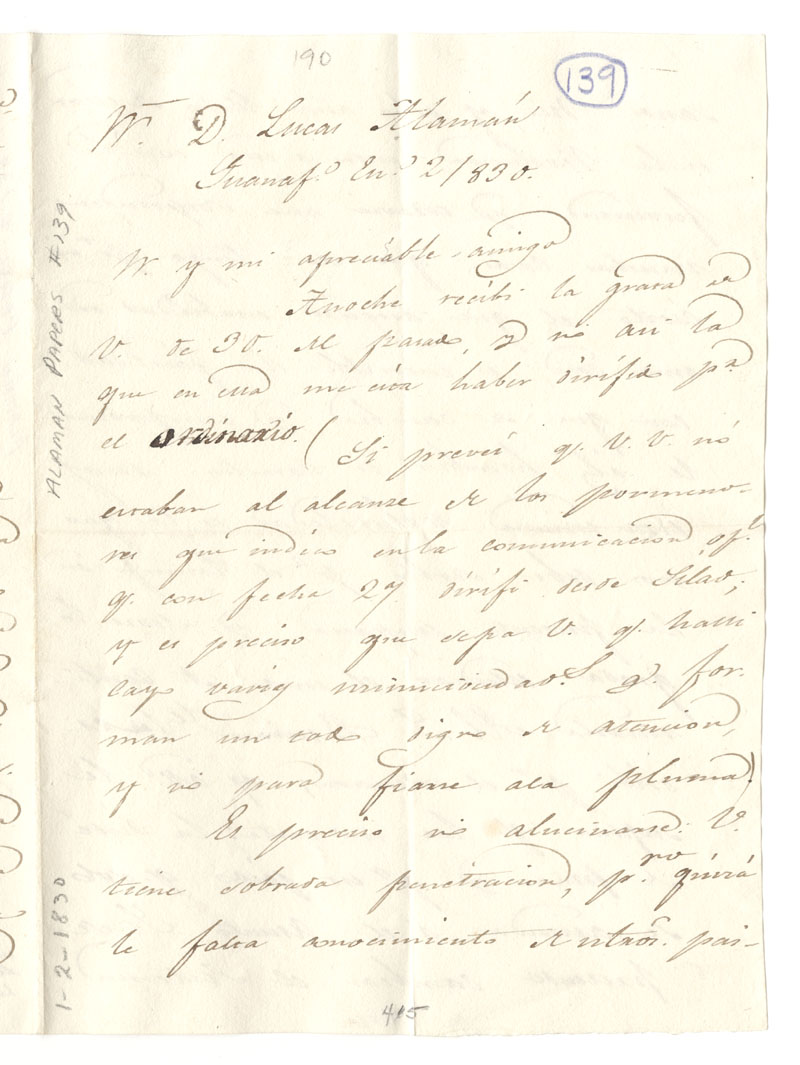 190
139
Sr. D. Lucas Alamán
Guanajto. Eno. 2/830.
Sr. y mi apreciable amigo
Anoche recibi la grata de
V. de 30. del pasado, y no asi la
que en esta me dice haber dirijido pa.
el ordinario. (Si preveí q. V.V. nó
estaban al alcanze de los pormeno-
res que indico en la comunicacion ofl.
q. con fecha 29 dirijí desde Silao;
y es preciso que sepa V. q. hasi
cay varias minuciosidads. q. for-
man un todo digno de atencion,
y no para fiarse ala pluma.)
Es preciso no alucinarse: V.
tiene sobrada penetracion, pro. quizá
le falta conocimiento de ntros. pai-
415
ALAMAN PAPERS #139
1-2-1830